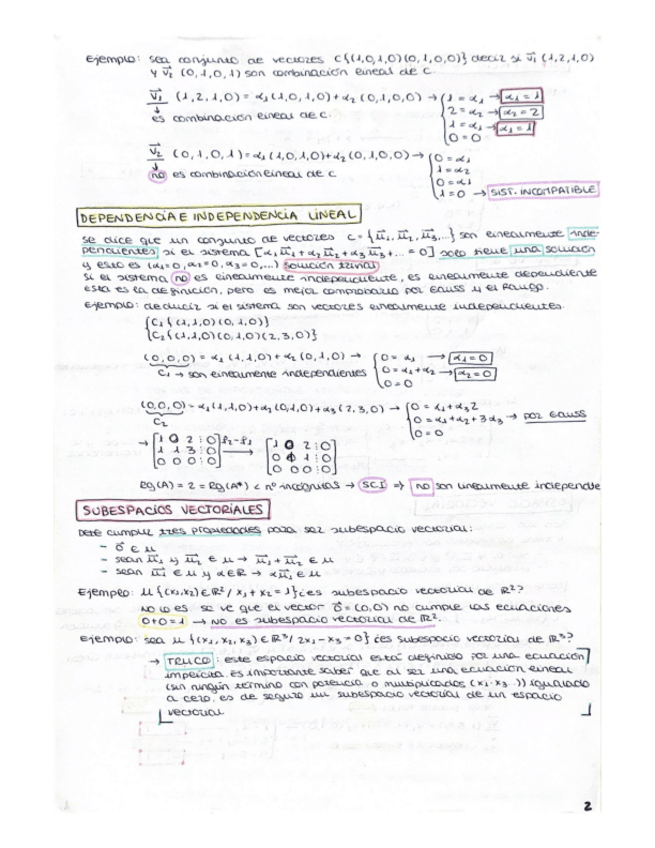 Ejemplo: sea conjunto de vectores C{(1,0,1,0)(0,1,0,0)} decir si v⃗₁ (1,2,1,0)
y v⃗₂ (0,1,0,1) son combinación lineal de C.
v⃗₁ (1,2,1,0) = α₁(1,0,1,0) + α₂ (0,1,0,0) → { 1 = α₁ → α₁ = 1
2 = α₂ → α₂ = 2
es combinación lineal de C.
1 = α₁ → α₁ = 1
0 = 0
v⃗₂ (0,1,0,1) = α₁(1,0,1,0) + α₂ (0,1,0,0) → { 0 = α₁
1 = α₂
no es combinación lineal de C
0 = α₁
1 = 0 → SIST. INCOMPATIBLE
DEPENDENCIA E INDEPENDENCIA LINEAL
Se dice que un conjunto de vectores C = {u⃗₁, u⃗₂, u⃗₃,...} son linealmente inde-
pendientes si el sistema [α₁u⃗₁ + α₂u⃗₂ + α₃u⃗₃ + ... = 0] solo tiene una solución
y esto es (α₁=0, α₂=0, α₃=0,...) solución trivial
si el sistema no es linealmente independiente, es linealmente dependiente
esta es la definición, pero es mejor comprobarlo por Gauss y el Rango.
Ejemplo: deducir si el sistema son vectores linealmente independientes.
{C₁{(1,1,0)(0,1,0)}
{C₂{(1,1,0)(0,1,0)(2,3,0)}
(0,0,0) = α₁ (1,1,0) + α₂ (0,1,0) → { 0 = α₁ → α₁ = 0
C₁ → son linealmente independientes { 0 = α₁ + α₂ → α₂ = 0
0 = 0
(0,0,0) = α₁(1,1,0) + α₂(0,1,0) + α₃(2,3,0) → { 0 = α₁ + α₃2
C₂ 0 = α₁ + α₂ + 3α₃ → por Gauss
0 = 0
→ [1 0 2 ⋮ 0] f₂-f₁ [1 0 2 ⋮ 0]
[1 1 3 ⋮ 0] → [0 1 1 ⋮ 0]
[0 0 0 ⋮ 0] [0 0 0 ⋮ 0]
Rg(A) = 2 = Rg(A*) < nº incógnitas → SCI ⇒ no son linealmente independie
SUBESPACIOS VECTORIALES
Debe cumplir tres propiedades para ser subespacio vectorial:
- 0⃗ ∈ u
- sean u⃗₁ y u⃗₂ ∈ u → u⃗₁ + u⃗₂ ∈ u
- sean u⃗₁ ∈ u y α ∈ ℝ → αu⃗₁ ∈ u
Ejemplo: u {(x₁,x₂) ∈ ℝ² / x₁ + x₂ = 1} ¿es subespacio vectorial de ℝ²?
No lo es. Se ve que el vector 0⃗ = (0,0) no cumple las ecuaciones
0+0=1 → No es subespacio vectorial de ℝ².
Ejemplo: sea u {(x₁, x₂, x₃) ∈ ℝ³ / 2x₁ - x₃ = 0} ¿es subespacio vectorial de ℝ³?
→ TRUCO: este espacio vectorial está definido por una ecuación
implícita. Es importante saber que al ser una ecuación lineal
(sin ningún término con potencia o multiplicados (x₁·x₃...)) igualado
a cero, es de seguro un subespacio vectorial de un espacio
vectorial
2